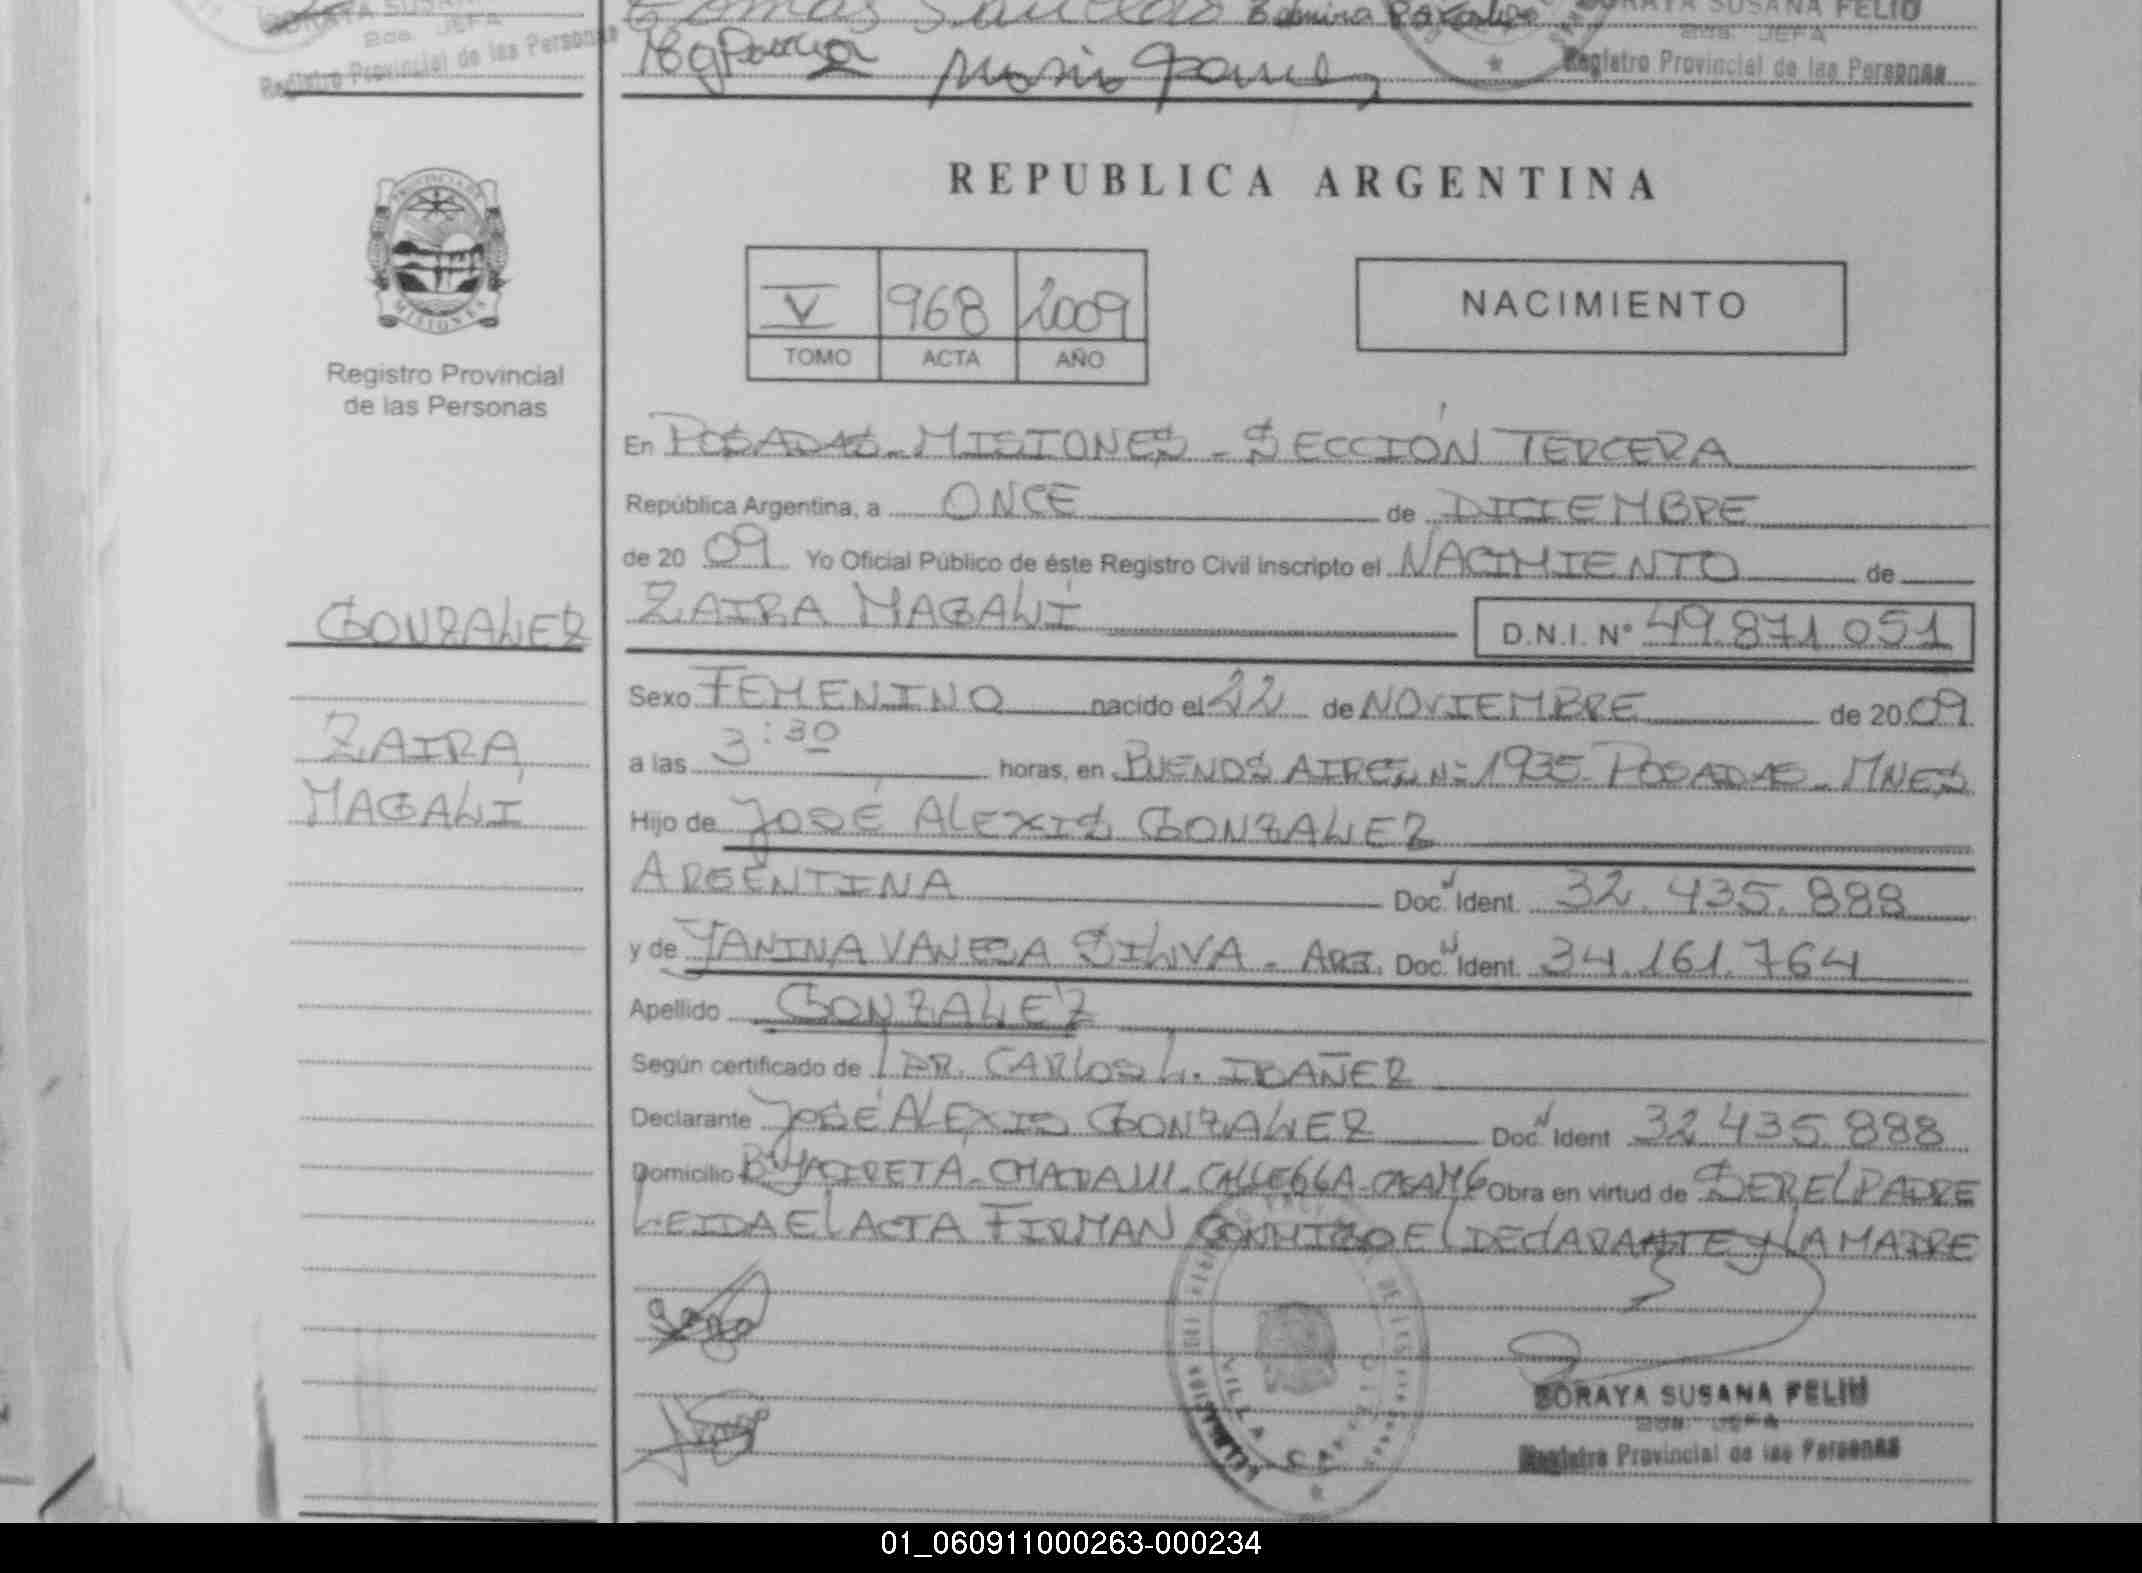 SORAYA SUSANA FELIU
2da. JEFA
Registro Provincial de las Personas
REPUBLICA ARGENTINA
PROVINCIA DE
MISIONES
Registro Provincial
de las Personas
V 968 2009
TOMO ACTA AÑO
NACIMIENTO
En POSADAS - MISIONES - SECCIÓN TERCERA
República Argentina, a ONCE de DICIEMBRE
de 20 09 Yo Oficial Público de éste Registro Civil inscripto el NACIMIENTO de
GONZALEZ
ZAIRA MAGALÍ
D.N.I. Nº 49.871.051
Sexo FEMENINO nacido el 22 de NOVIEMBRE de 20 09
ZAIRA
MAGALI
a las 3:30 horas, en BUENOS AIRES Nº 1935 POSADAS - MNES
Hijo de JOSÉ ALEXIS GONZALEZ
ARGENTINA Doc. Ident. 32.435.888
y de YANINA VANESA SILVA - ARG. Doc. Ident. 34.161.764
Apellido GONZALEZ
Según certificado de DR. CARLOS L. IBAÑEZ
Declarante JOSÉ ALEXIS GONZALEZ Doc. Ident 32.435.888
Domicilio Bº YACIRETA - Obra en virtud de SER EL PADRE
LEIDA EL ACTA FIRMAN CONMIGO EL DECLARANTE y LA MADRE
SORAYA SUSANA FELIU
2da. JEFA
Registro Provincial de las Personas
01_060911000263-000234